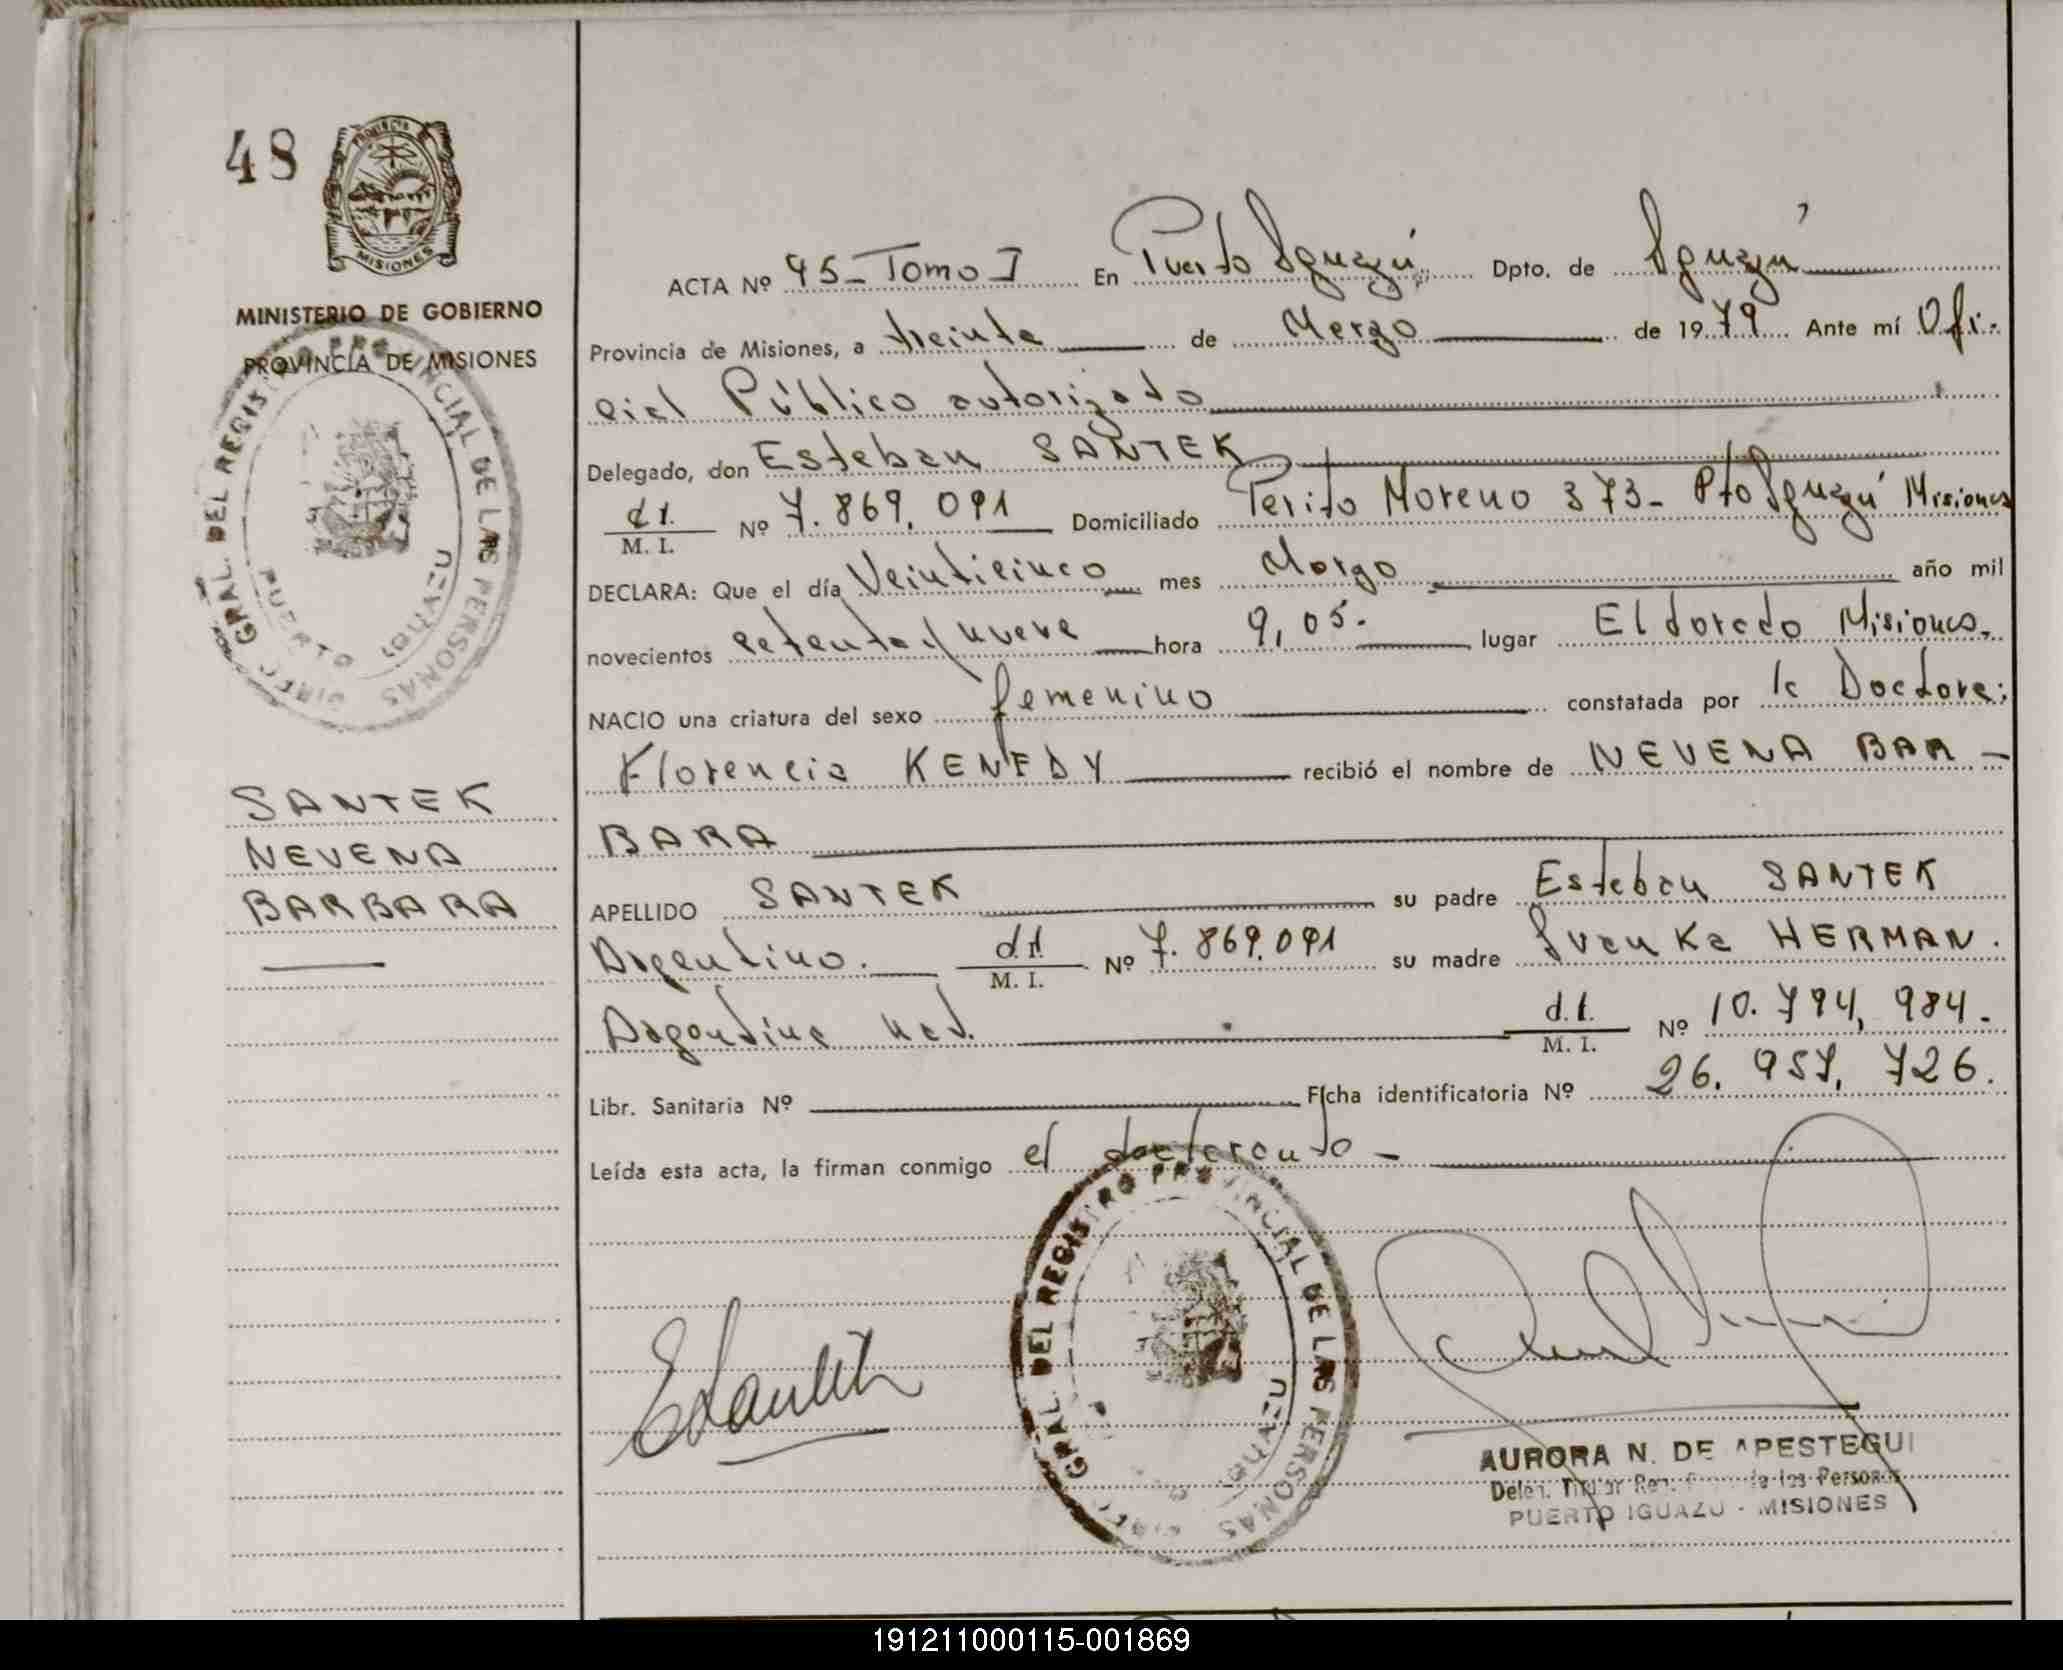 48
PROVINCIA
MISIONES
MINISTERIO DE GOBIERNO
PROVINCIA DE MISIONES
GRAL. DEL REGISTRO PROVINCIAL DE LAS PERSONAS
PUERTO
SANTEK
NEVENA
BARBARA
ACTA Nº 95- Tomo I En Puerto Iguazú Dpto. de Iguazú
Provincia de Misiones, a treinta de Marzo de 1979 Ante mí Ofi-
cial Público autorizado
Delegado, don Esteban SANTEK
d.i.
M. I. Nº 7.869.091 Domiciliado Perito Moreno 373- Pto Iguazú Misiones
DECLARA: Que el día Veinticinco mes Marzo año mil
novecientos setenta y nueve hora 9,05. lugar Eldorado Misiones.
NACIO una criatura del sexo femenino constatada por la Doctora:
Florencia KENEDY recibió el nombre de NEVENA BAR-
BARA
APELLIDO SANTEK su padre Esteban SANTEK
Argentino. d.i.
M. I. Nº 7.869.091 su madre Ivanka HERMAN.
Argentina nat. d.i.
M. I. Nº 10.794,984.
Libr. Sanitaria Nº Ficha identificatoria Nº 26.957.726.
Leída esta acta, la firman conmigo el declarante -
GRAL. DEL REGISTRO PROVINCIAL DE LAS PERSONAS
ESantek
AURORA N. DE APESTEGUI
Deleg. Titular Reg. de las Personas
PUERTO IGUAZU - MISIONES
191211000115-001869